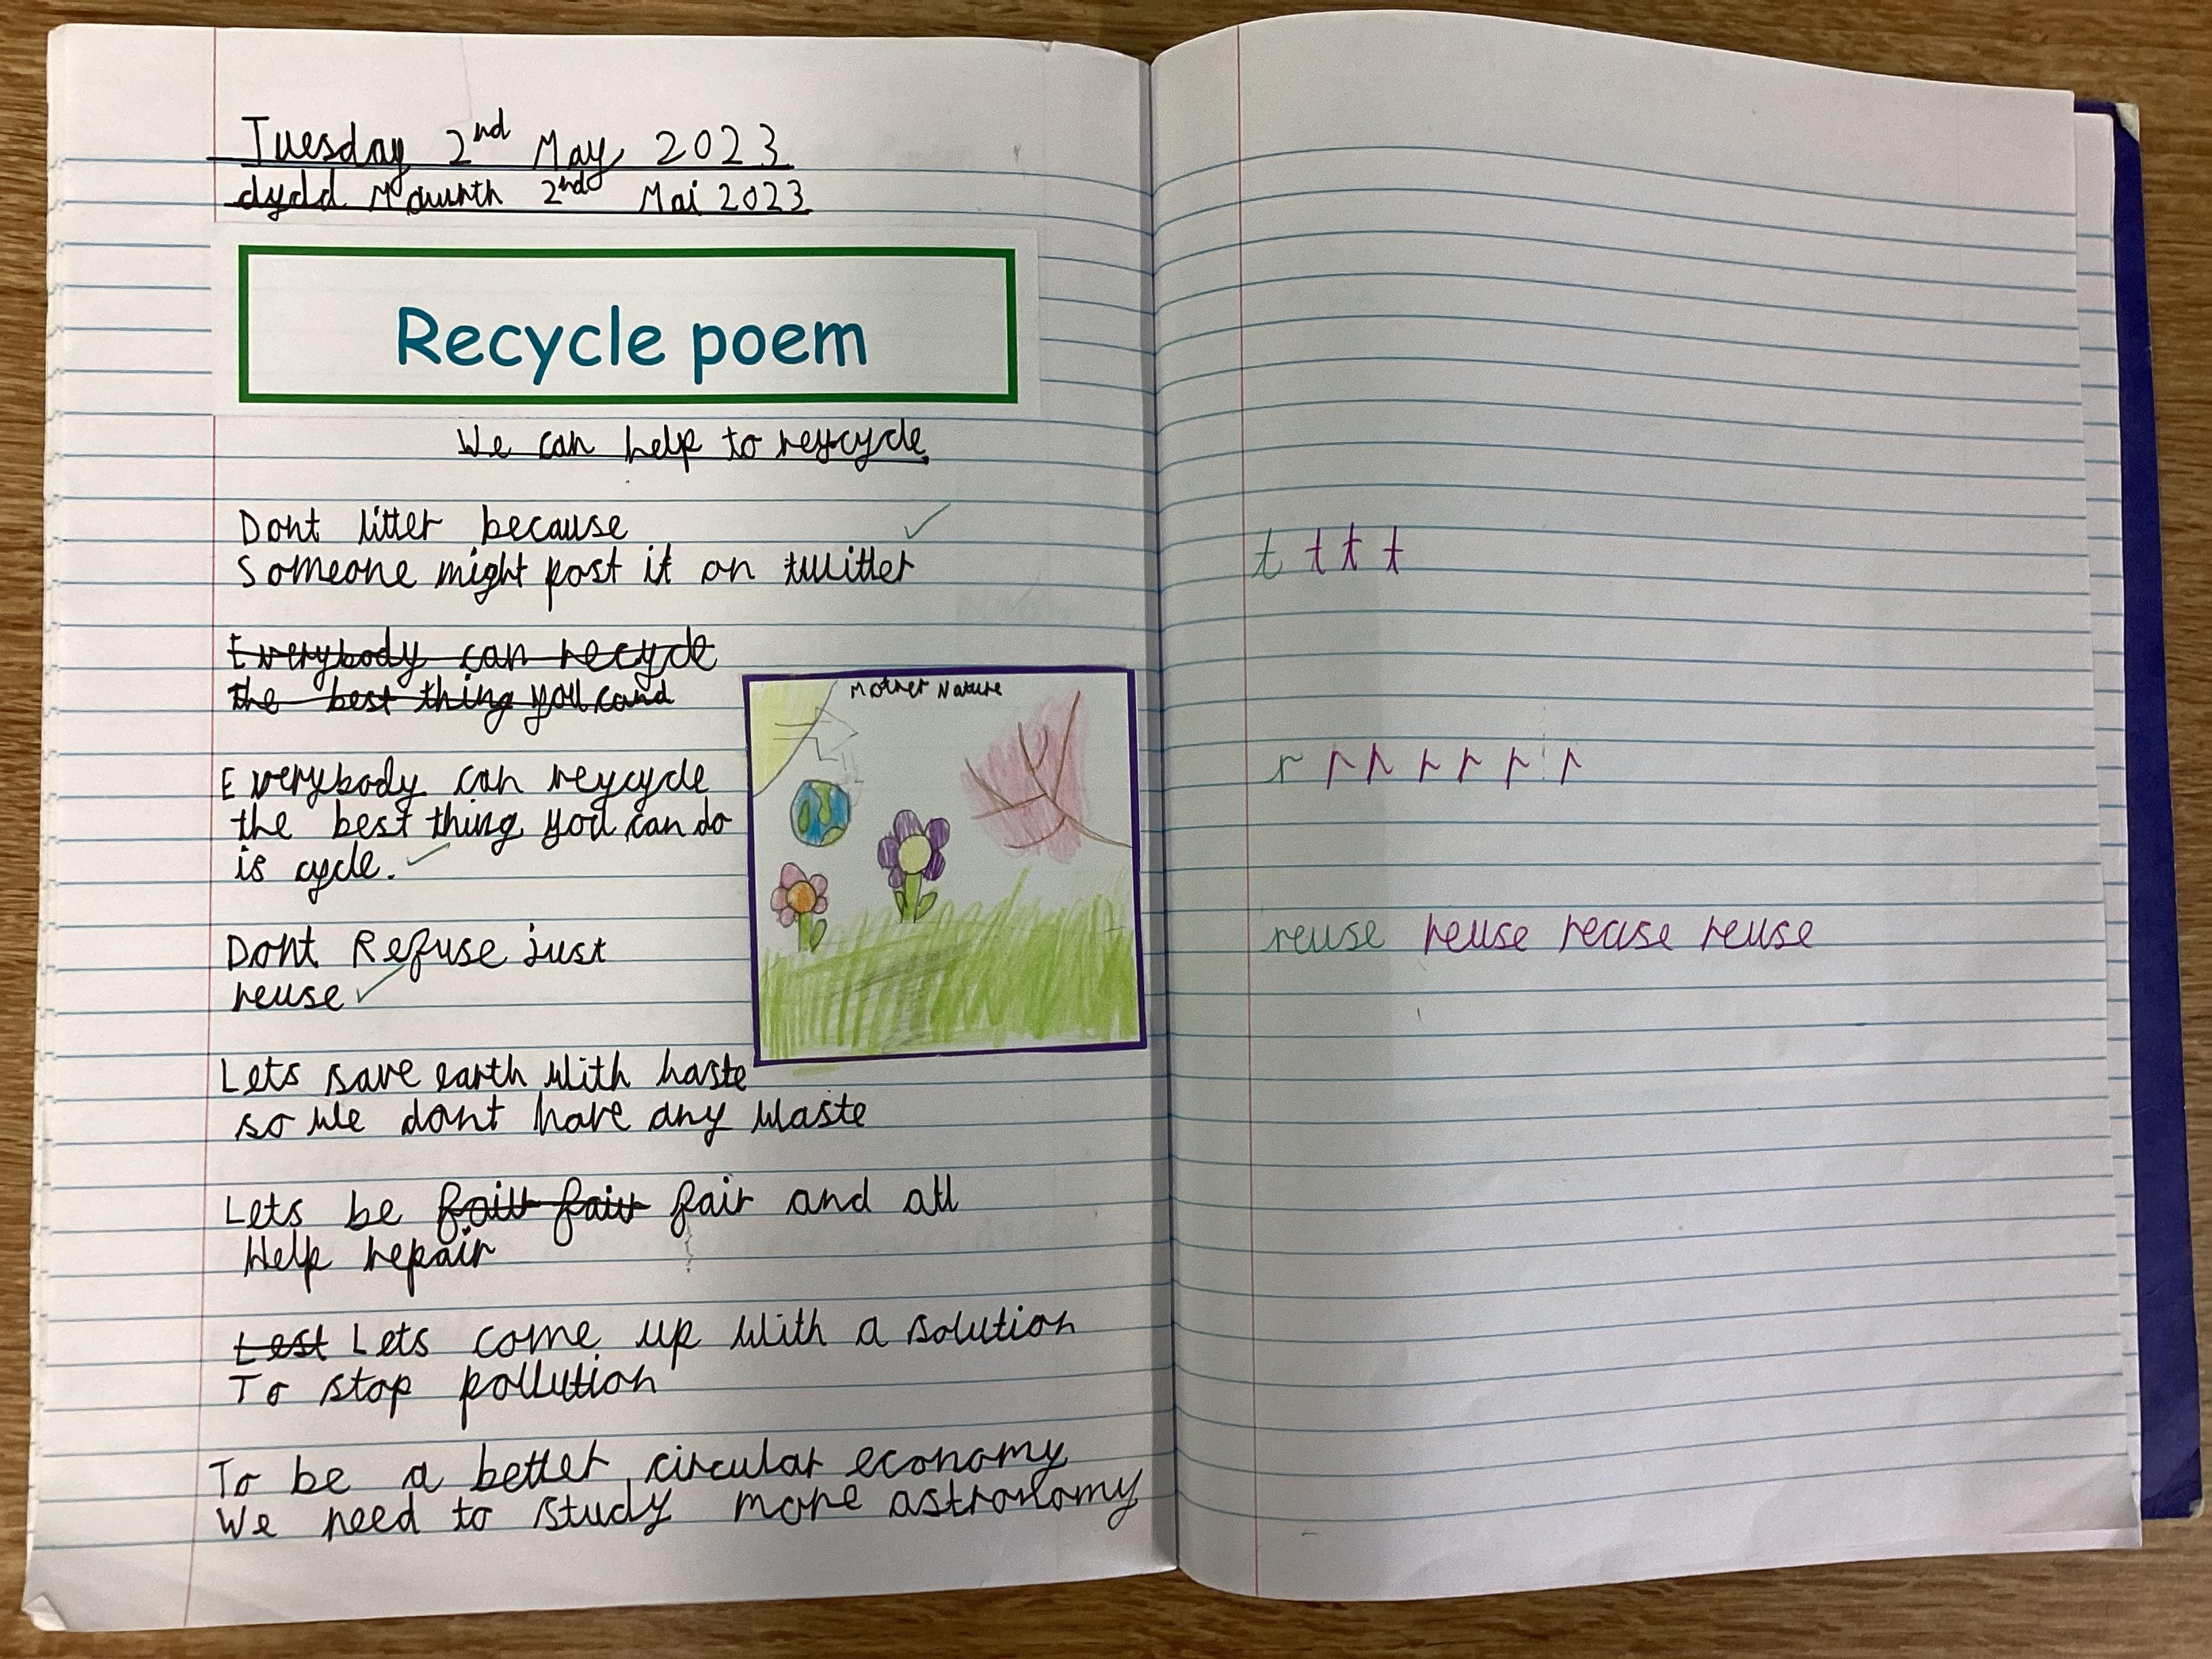 Tuesday 2nd May 2023
dydd Mawrth 2nd Mai 2023
Recycle poem
We can help to reycycle
Dont litter because
Someone might post it on twitter
Everybody can recycle
the best thing you cand
Everybody can reycycle
the best thing you can do
is cycle.
Dont Refuse just
reuse
Mother Nature
Lets save earth with haste
so we dont have any waste
Lets be fair and all
Help repair
Lest Lets come up with a solution
To stop pollution
To be a better circular economy
We need to study more astronomy
t t t t
r r r r r r r
reuse reuse reuse reuse